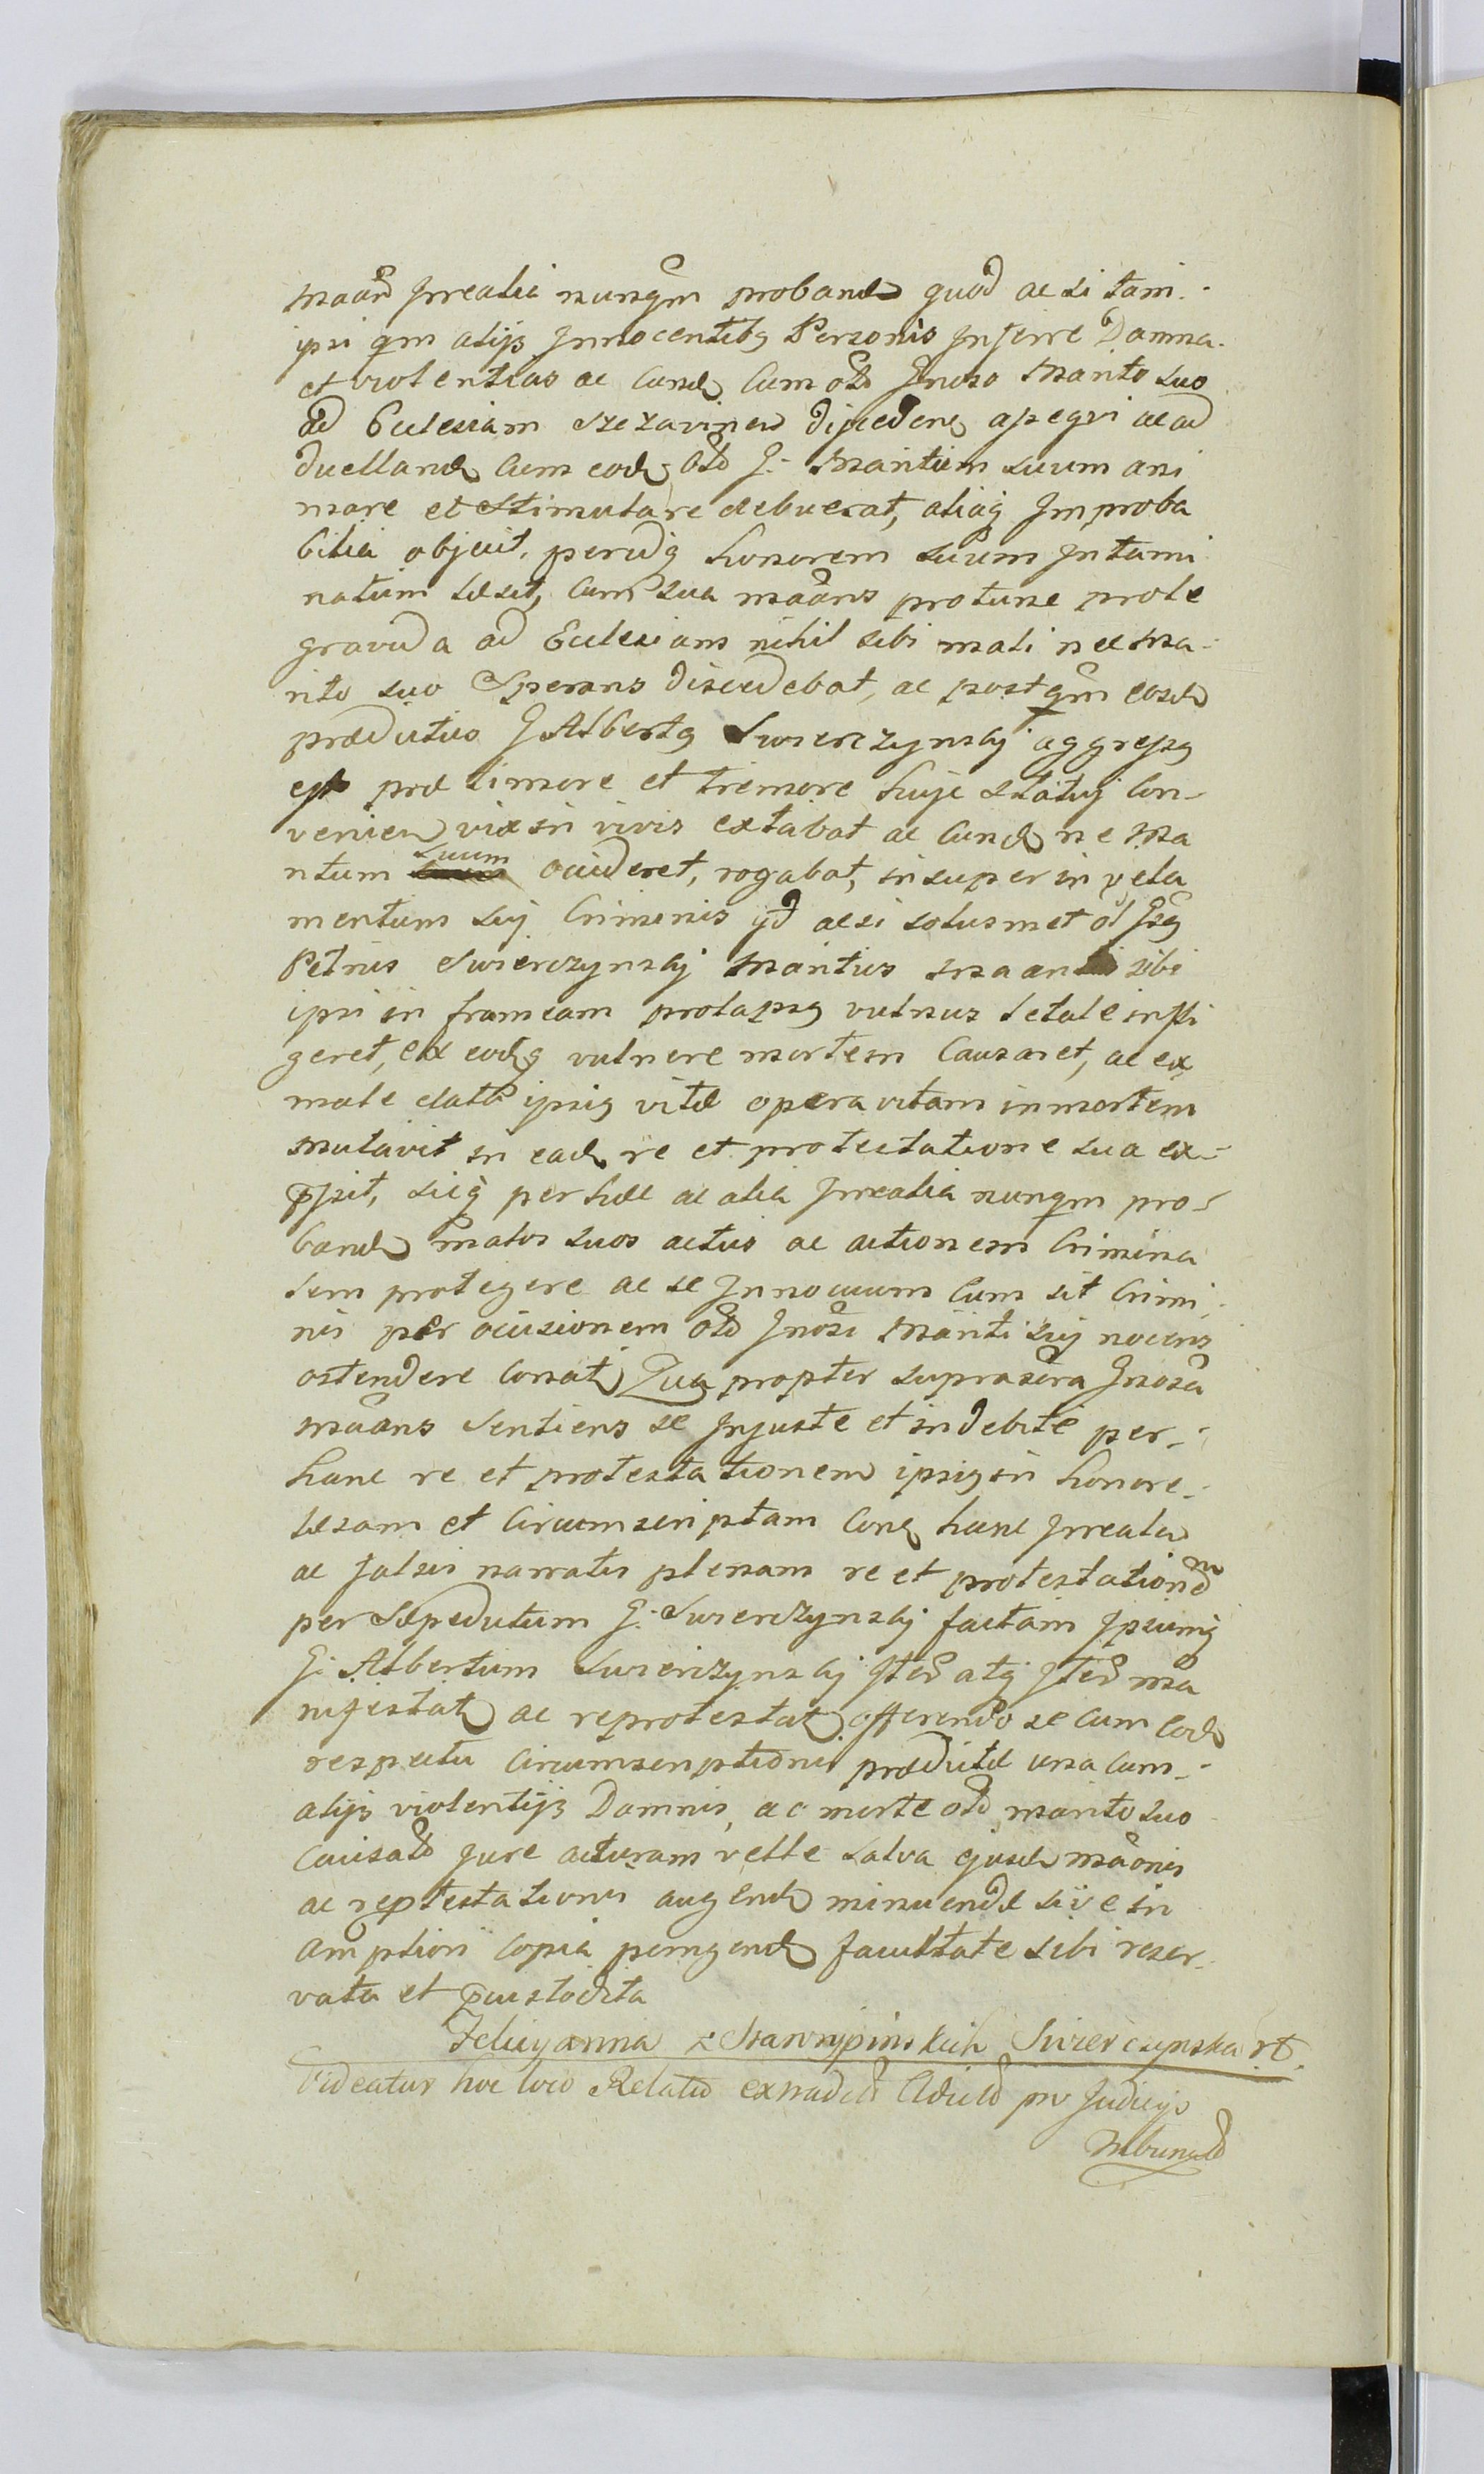 maan̄ Jrrealia nunqm probanda quod ac si tam
ipsi qm alijs Jnnocentibq Personis Jnferre Damna
et violentias ac Cund Cum olo Gnoso Marito suo
ad Ecclesiam Szczavinen discedens assequi ac ad
duelland Cum eod olo G: Maritum suum ani
mare et stimulare debuerat, aliaq Improba
bilia objecit, per idq honorem suum Jntami
natum læsit, Cum sua maans protunc prole
gravida ad Ecclesiam nihil sibi mali nec Ma-
rito suo Sperans discedebat, ac postqm eosd
prædictus G Albertq Swierczynskj aggressq
est præ timore et tremore hujc statuj Con-
venien vix in vivis extabat ac Cund ne Ma
ritum suum occideret, rogabat, insuper in vela
mentum sui Criminis qd ac si solusmet ol Gsq
Petrus Swierczynskj Maritus Maantis sibi
ipsi in frameam prolapsq vulnus letale infli
geret, ex eodq vulnere mortem Causaret, ac ex
male data ipsiq vitæ opera vitam in mortem
mutavit in ead re et protestatione sua ex-
pssit, sicq per hæc ac alia Jrrealia nunqm pro-
band malos suos actus ac actionem Crimina
lem protegere ac se Jnnocuum Cum sit Crimi
nis per occisionem olo Gnosi Mariti sui nocens
ostendere Conat Qua propter suprascra Gnosa
maans Sentiens se Jnjuste et indebite per-
hanc re et protestationem ipsiq in honore-
læsam et Circumscriptam Cong hanc Jrreala
ac falsis narratis plenam re et protestationem
per Sæpedictum G: Swierczynskj factam Jpsumq
G: Albertum Swierczynskj Jted atq Jted ma
nifestat ac reprotestat offerendo se Cum eod
respectu Circumscriptionis prædictæ una cum-
alijs violentijs Damnis, ac morte olo marito suo
Causato Jure acturam velle salva ejusd maonis
ac reptestationis augend minuendæ sive in
ampliori Copia porrigend facultate sibi reser-
vata et pcustodita
Felicyanna z Skarzypinskich Swierczynska rt
Videatur hoc loco Relatio extradit Citato pro Judicijs